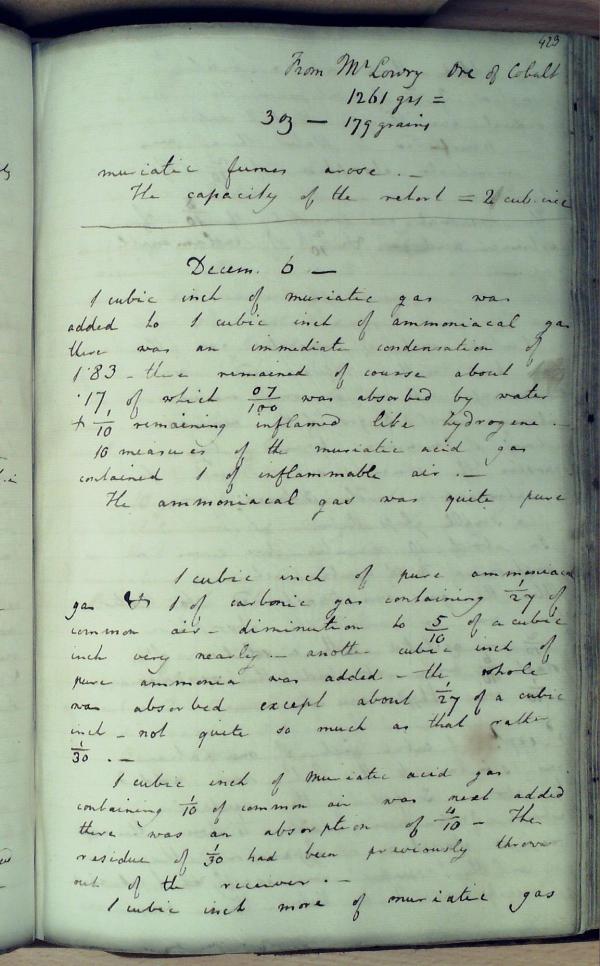 423
From Mr Lowry Ore of Cobalt
1261 grs =
3 oz — 179 grains
muriatic fumes arose. —
The capacity of the retort = 2 cub. inc
Decem. 6 —
1 cubic inch of muriatic gas was
added to 1 cubic inch of ammoniacal gas
there was an immediate condensation of
1.83 - there remained of course about
.17 of which 07/100 was absorbed by water
+ 1/10 remaining inflamed like hydrogene. —
10 measures of the muriatic acid gas
contained 1 of inflammable air. —
The ammoniacal gas was quite pure
1 cubic inch of pure ammoniacal
gas & 1 of carbonic gas containing 1/27 of
common air - diminution to 5/10 of a cubic
inch very nearly. — another cubic inch of
pure ammonia was added - the whole
was absorbed except about 1/27 of a cubic
inch - not quite so much as that rather
1/30 . —
1 cubic inch of Muriatic acid gas
containing 1/10 of common air was next added
there was an absorption of 4/10 — The
residue of 1/30 had been previously thrown
out of the receiver. —
1 cubic inch more of muriatic gas